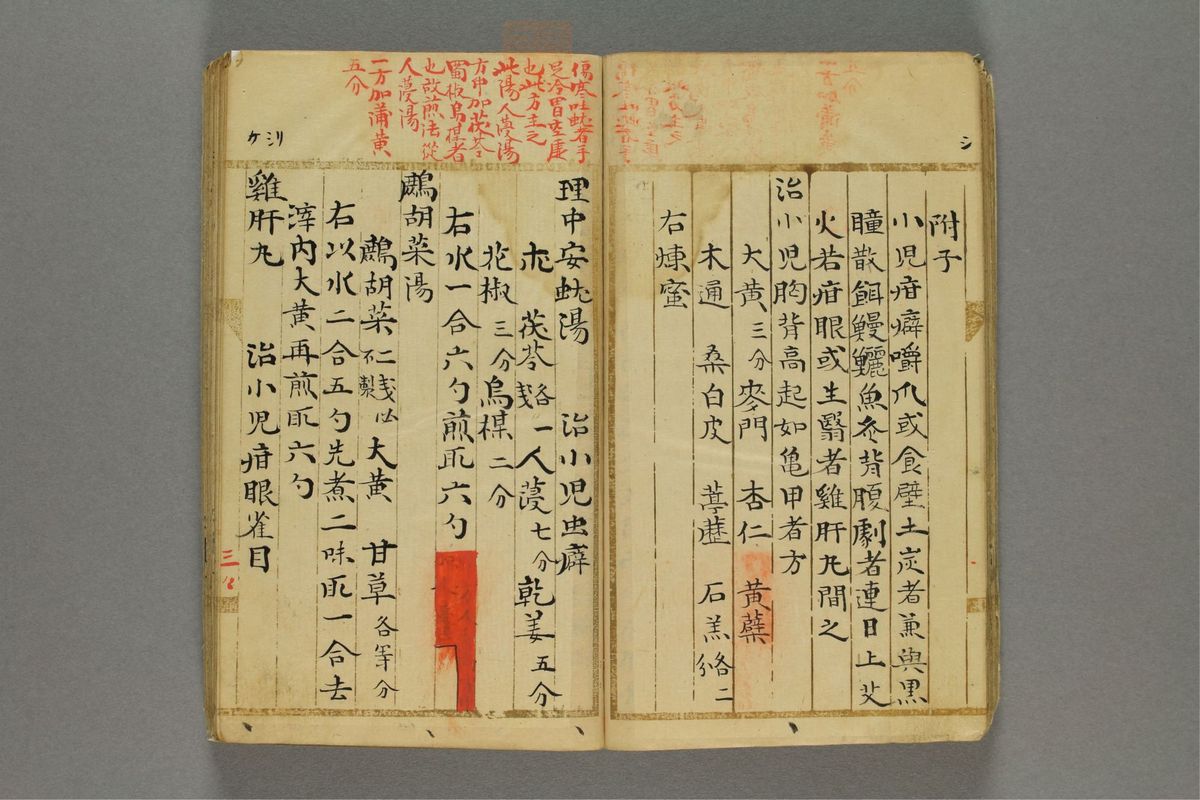 シ
附子
小児疳癖嚼爪或食壁土炭者兼與黒
瞳散餌鰻鱺魚灸背腹劇者連日上艾
火若疳眼或生翳者雞肝丸間之
治小児胸背高起如亀甲者方
大黄三分 麥門 杏仁 黄蘗
木通 桑白皮 葶藶 石羔各二分
右煉蜜
傷寒吐蚘者手
足冷胃空虚
也此方主之
此陽人薓湯
方中加茯苓
蜀椒烏楳者
也故煎法從
人薓湯
一方加蒲黄
五分
理中安蚘湯 治小児虫癖
朮 茯苓各一銭 人薓七分 乾姜五分
花椒三分 烏楳二分
右水一合六勺煎取六勺
鷓胡菜湯
鷓胡菜 大黄 甘草各等分
右以水二合五勺先煮二味取一合去
滓内大黄再煎取六勺
雞肝丸 治小児疳眼雀目
ケ ミ リ
三